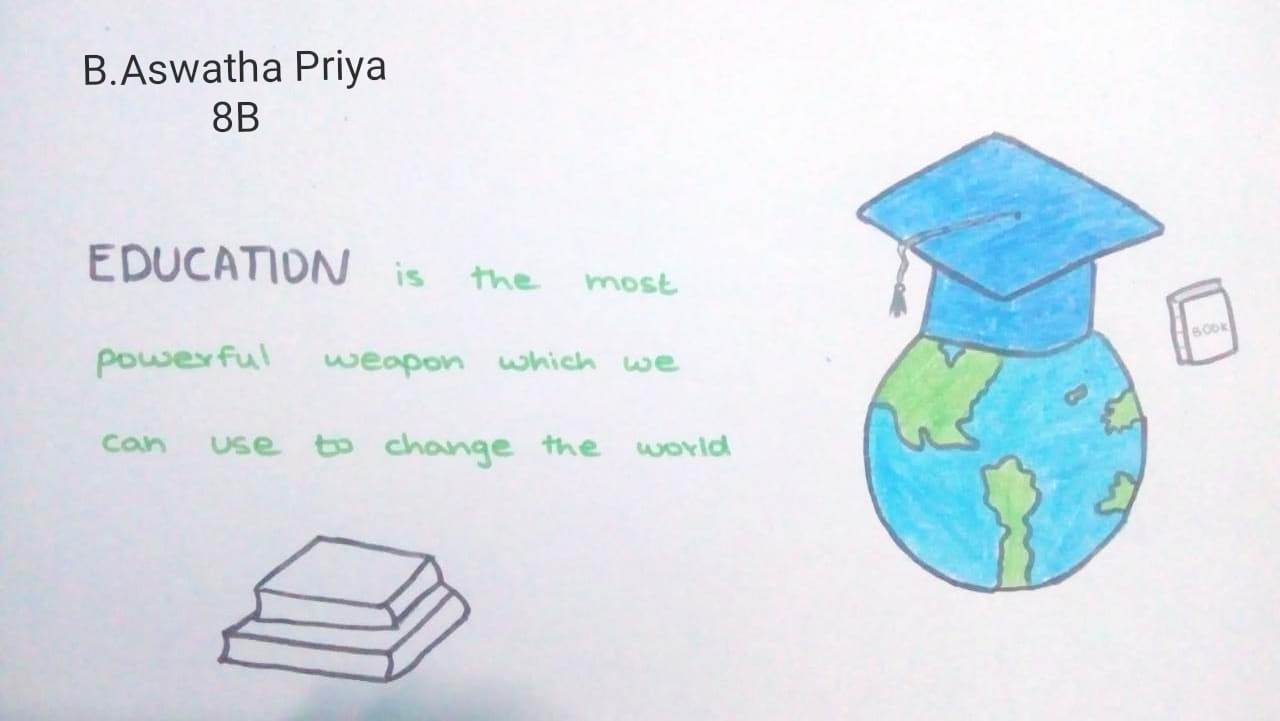 B.Aswatha Priya
8B
EDUCATION is the most
powerful weapon which we
can use to change the world
BOOK